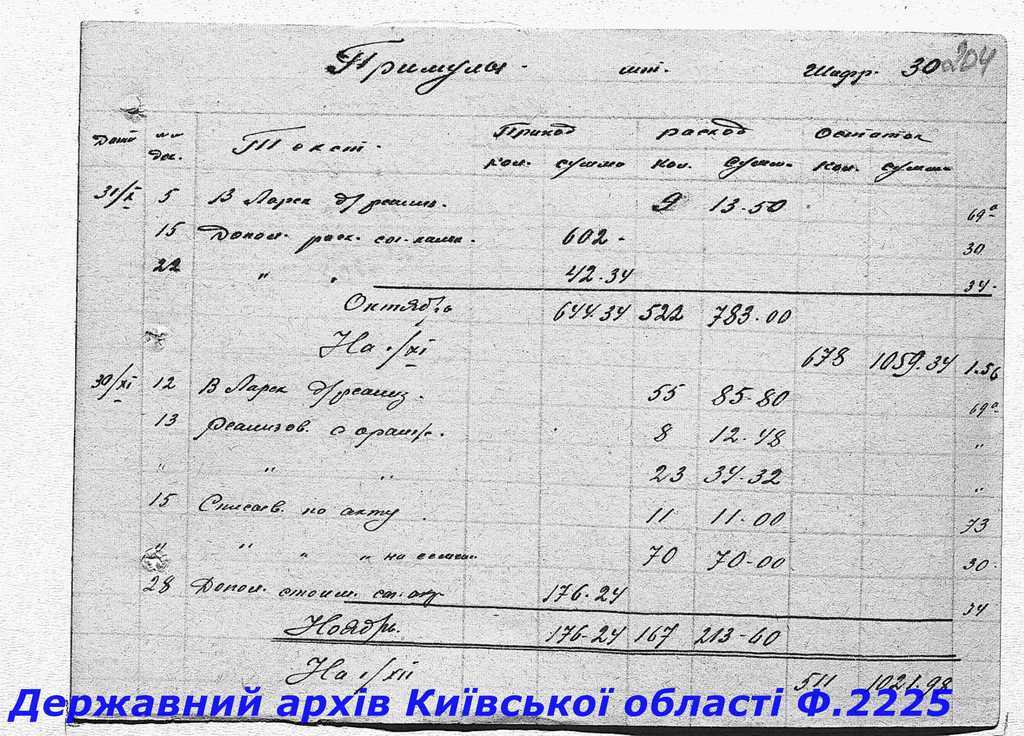 Примулы. шт. Шафр. 30 204
Дата №№ док. Текст. Приход расход Остаток
кол. сумма кол. Сумм. Кол. сумма
31/X 5 В Ларек д/реализ. 9 13-50 69а
15 Допол. расх. сог. кальк. 602- 30
22 " " 42-34 34-
Октябрь 644.34 522 783-00
На 1/XI 678 1059.34 1.56
30/XI 12 В Ларек д/реализ. 55 85-80 69а
13 Реализов. с оранж. 8 12-48 "
" " " 23 34-32 "
15 Списав. по акту 11 11-00 73
" " " " на семена 70 70-00 30-
28 Допол. стоим. сог. акту 176-24 34
Ноябрь. 176-24 167 213-60
На 1/XII 511 1021.98
Державний архів Київської області Ф.2225